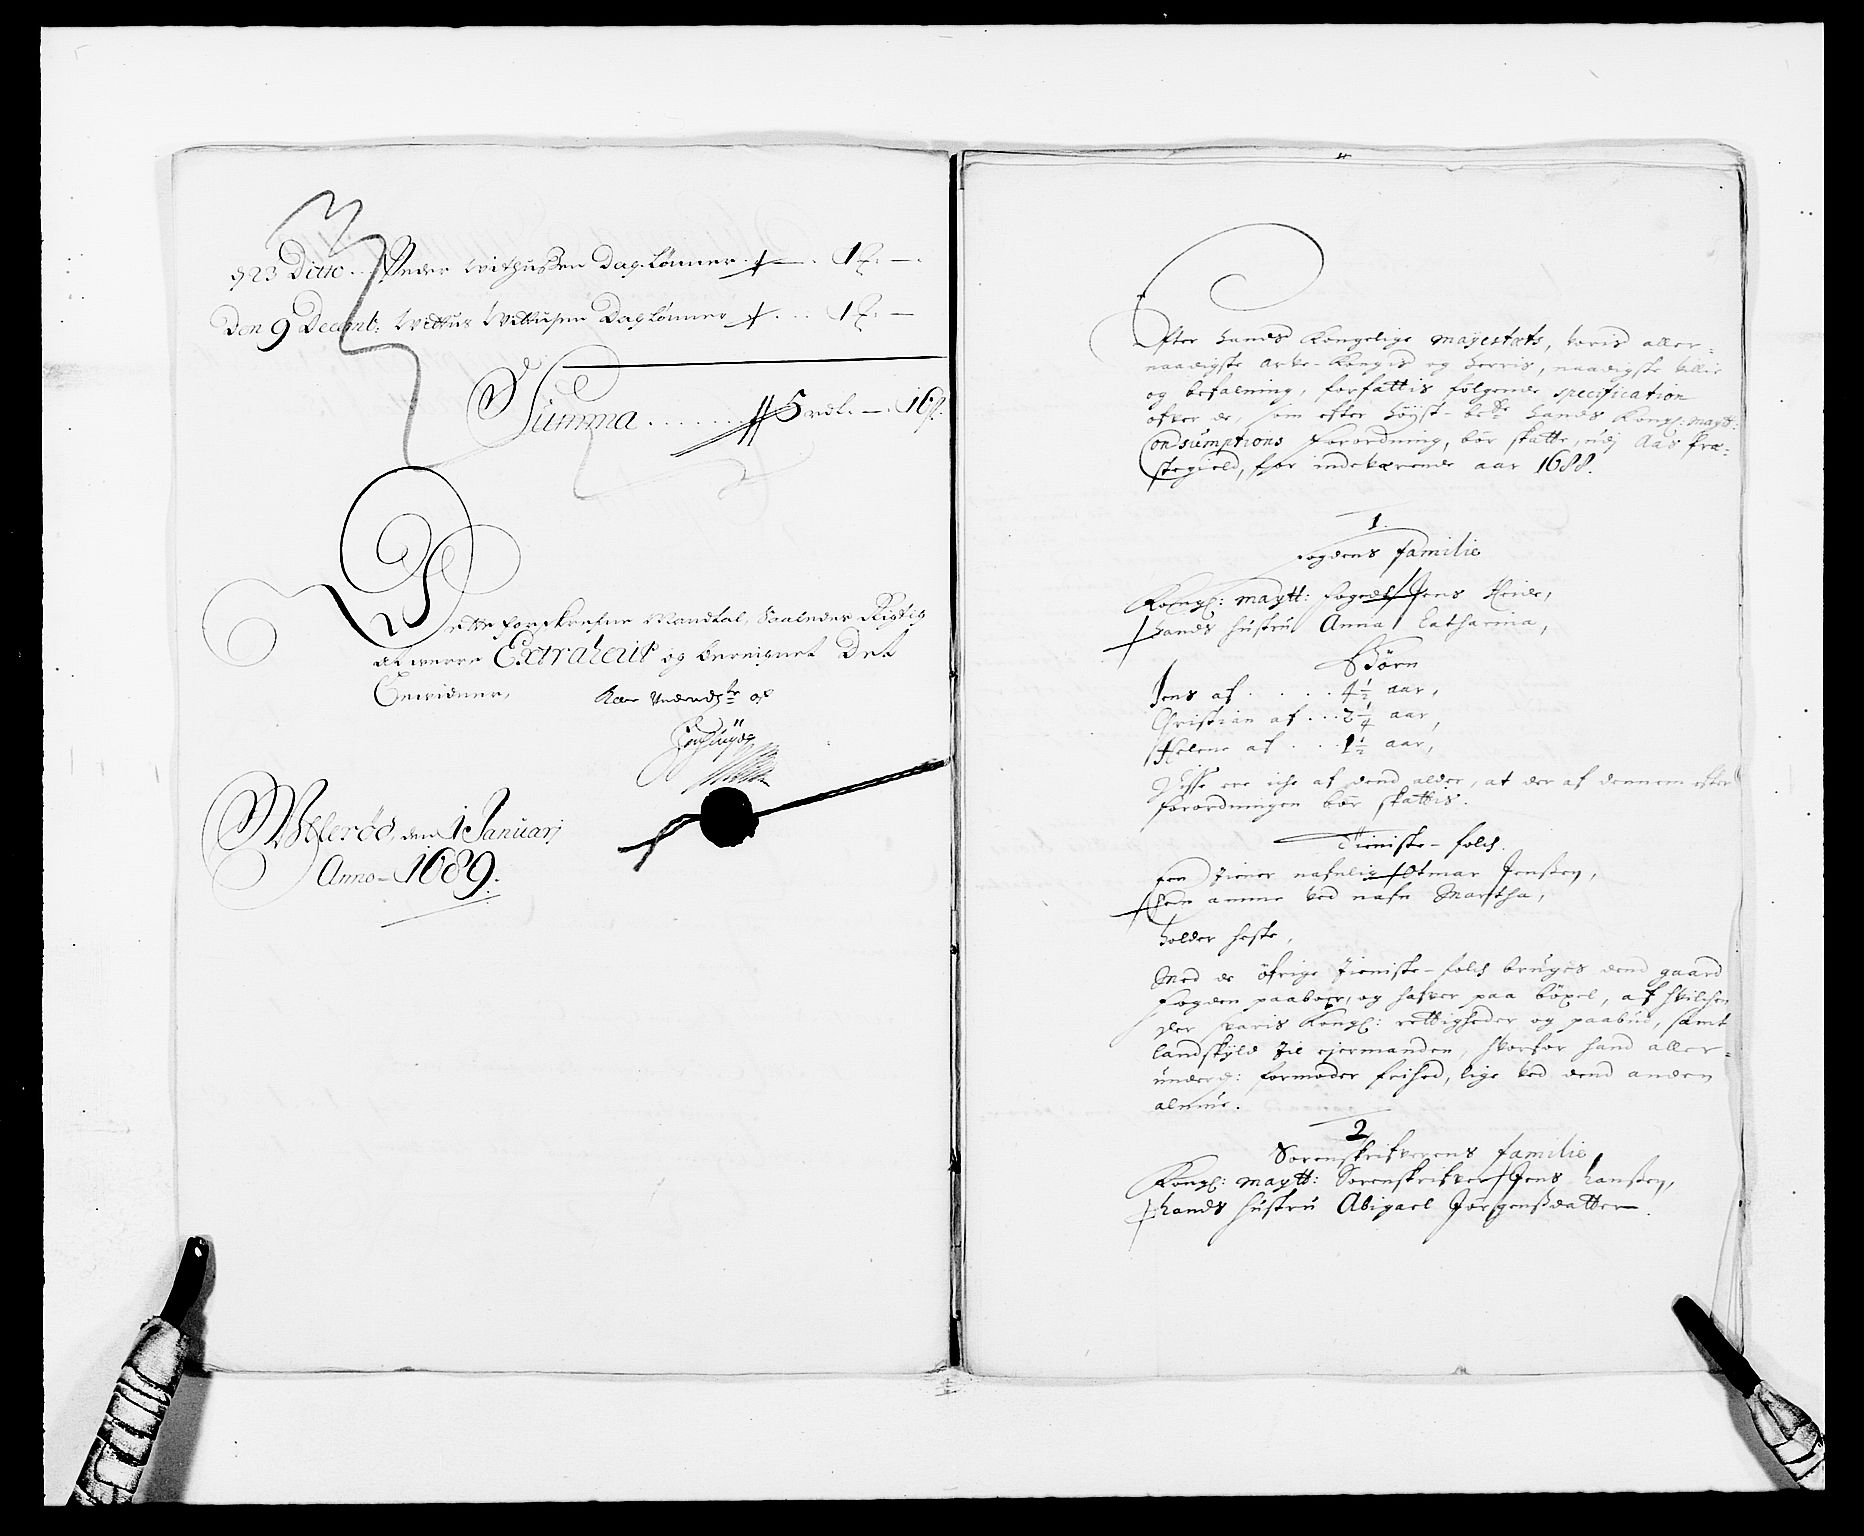 d 23 Ditto Peder Dag Lønner 1
Den 9 Decemb: Dag Lønner 1
Summa . . . . . . . 5 rdl. — 16
Dette forskrefne Mandtal, Saaledes Rigtig
at werre Extraherit og beregnet Det
den 1 Januarj
Anno 1689.
Efter hands Kongelige mayestæts, voris aller-
naadigste arve-Kongis og herris, naadigste villie
og befalning, forfattis følgende specification
ofver de, som efter høyst-bete hands Kongl: maytt:
Consumptions forordning, bør skatte, udj Aas Præ-
stegield, for indeværende aar 1688.
1.
Fogdens familie
Kongl: maytt: foged Jens
hands hustru Anna Catharina,
Børn
Jens af . . . . 4½ aar,
Christian af . . . 2¼ aar,
Helene af . . . 1½ aar,
Disse ere iche af dend alder, at der af dennem efter
forordningen bør skattis.
Tieniste-folch.
Een tiener nafnlig Otmar Jenssen,
Een amme ved nafn Martha,
holder heste,
Med de øfrige tieniste-folch bruges dend gaard
Fogden paaboer, og hafver paa bøxel, af hvilchen
der svaris Kongl: rettigheder og paabud, samt
landskyld til ejermanden, hvorfor hand aller-
underd: formoder frihed, lige ved dend anden
almue.
2
Sorenskrifverens familie
Kongl: maytt: Sorenskrifver Jens Hanssen,
hands hustru Abigael Jørgensdatter.